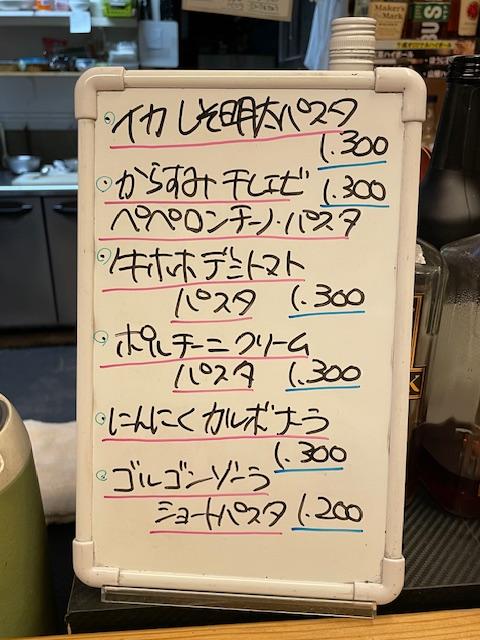 イカしそ明太パスタ
1.300
からすみ干しエビ 1.300
ペペロンチーノ・パスタ
牛ホホデミトマト
パスタ 1.300
ポルチーニクリーム
パスタ 1.300
にんにくカルボナーラ
1.300
ゴルゴンゾーラ
ショートパスタ 1.200
Maker's
Mark